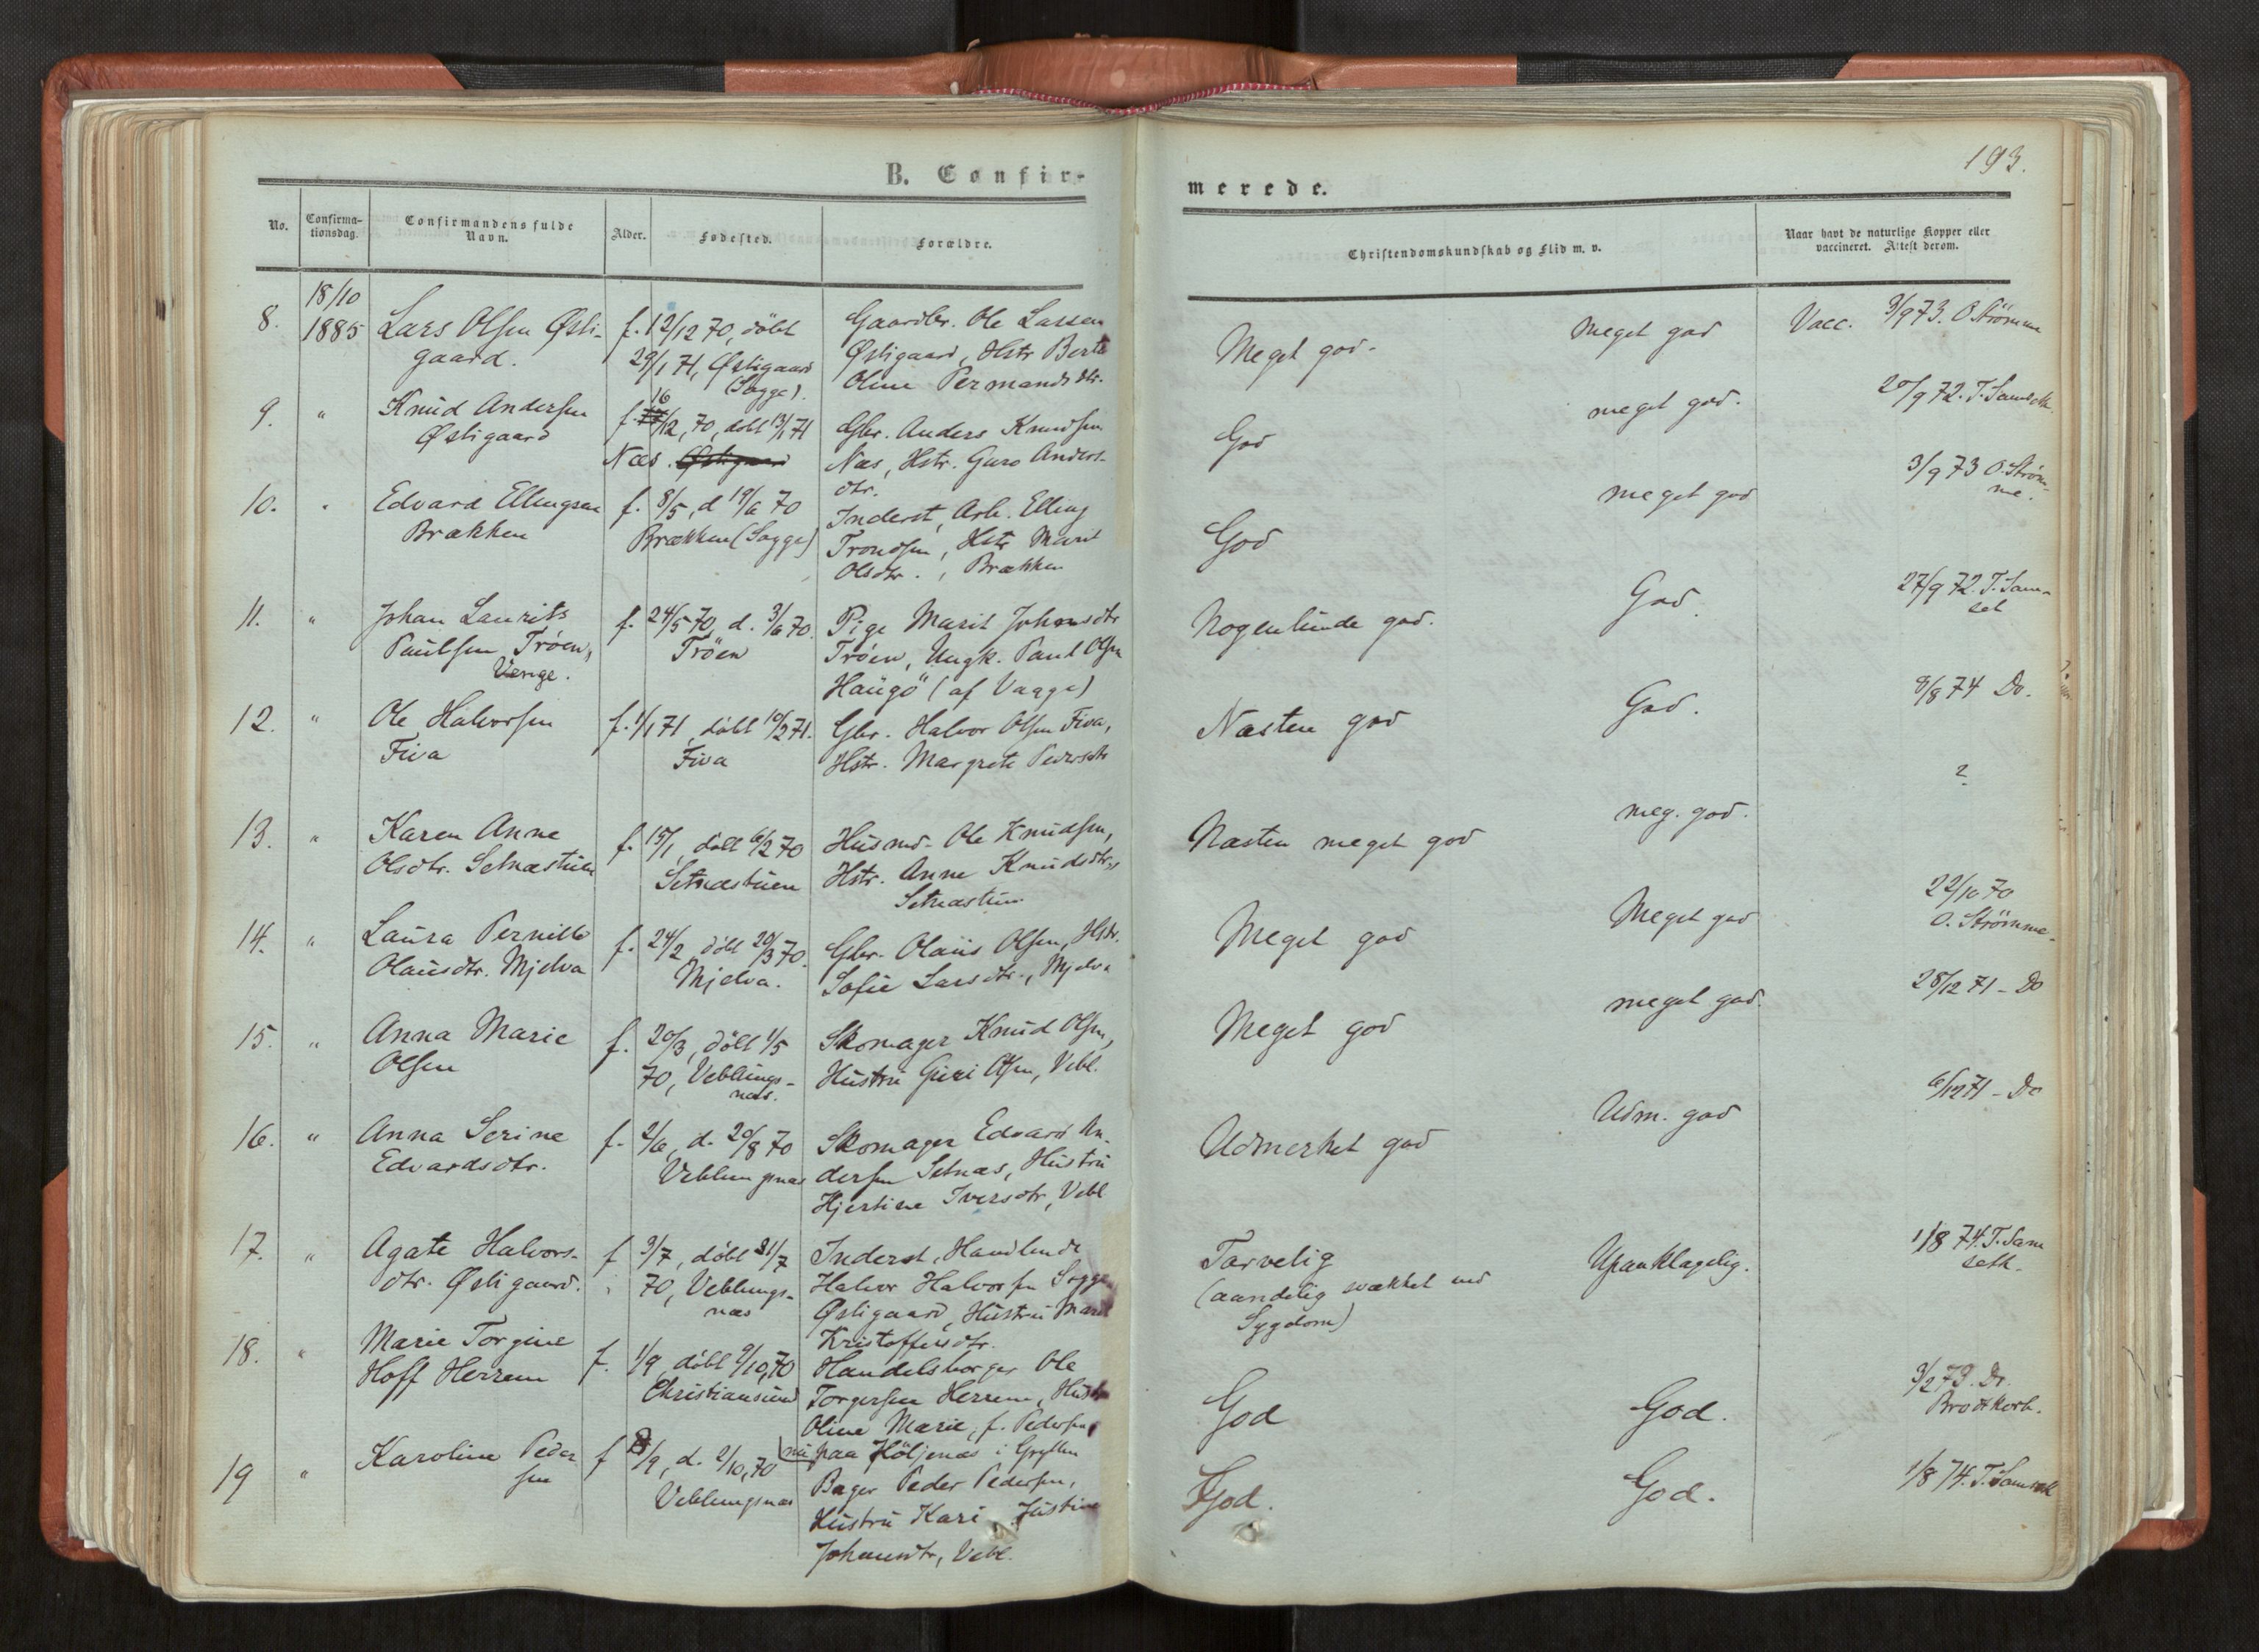 B. Confir-
No.
Confirma-
tionsdag.
Confirmandens fulde
Navn.
Alder.
Fødested.
Forældre.
8.
18/10
1885
Lars Olsen Østi-
gaard.
f. 12/12 70, döbt
29/1 71, Østigaard
(Sogge).
Gaardbr. Ole Larsen
Østigaard, Hstr Berte
Oline Permandsdtr.
9.
"
Knud Andersen
Østigaard
f. 16/12, 70, döbt 13/1 71
Næs.
Gbr. Anders Knudsen
Næs, Hstr. Guro Anders-
dtr.
10.
"
Edvard Ellingsen
Brækken
f. 8/5, d 19/6 70
Brækken (Sogge)
Inderst, Arb. Elling
Trondsen, Hstr Marit
Olsdtr., Brækken
11.
"
Johan Laurits
Paulsen Tröen,
Venge.
f. 24/5 70, d. 3/6 70.
Tröen
Pige Marit Johansdtr
Tröen, Ungk. Paul Olsen
Haugö (af Vaage)
12.
"
Ole Halvorsen
Fiva
f. 1/1 71, döbt 10/2 71.
Fiva
Gbr. Halvor Olsen Fiva,
Hstr. Margrete Pedersdtr
13.
"
Karen Anne
Olsdtr. Setnæstuen
f. 15/1, döbt 6/2 70
Setnæstuen
Husmd. Ole Knudsen,
Hstr. Anne Knudsdtr.,
Setnæstuen
14.
"
Laura Pernille
Olausdtr. Mjelva
f. 24/2, döbt 20/3 70.
Mjelva.
Gbr. Olaus Olsen, Hstr.
Sofie Larsdtr., Mjelva
15.
"
Anna Marie
Olsen
f. 20/3, döbt 1/5
70, Veblungs-
næs.
Skomager Knud Olsen,
Hustru Guri Olsen, Vebl.
16.
"
Anna Serine
Edvardsdtr.
f. 2/6, d. 20/8 70
Veblungsnæs
Skomager Edvard An-
dersen Setnæs, Hustru
Hjertine Iversdtr, Vebl
17.
"
Agate Halvors-
dtr. Østigaard.
f 3/7, döbt 31/7
70, Veblungs-
næs
Inderst, Handlende
Halvor Halvorsen Sogge
Østigaard, Hustru Marit
Kristoffersdtr.
18.
"
Marie Torgine
Hoff Herrem
f. 1/9, döbt 9/10, 70
Christiansund
Handelsborger Ole
Torgersen Herrem, Hustr
Oline Marie, f. Pedersen,
nu paa Höljenæs i Grytten
19
"
Karoline Peder
sen
f /9, d. 2/10, 70
Veblungsnæs
Bager Peder Pedersen,
Hustru Kari Justine
Johansdtr, Vebl.
193.
merede.
Christendomskundskab og Flid m. v.
Naar havt de naturlige Kopper eller
vaccineret. Attest derom.
Meget god.
Meget god
Vacc. 3/9 73. O Strömme
God
meget god.
20/9 72. T. Samseth.
God
meget god
3/9 73 O. Ström-
me.
Nogenlunde god.
God.
27/9 72. T. Sam-
set
Næsten god
God.
8/8 74 Do.
Næsten meget god
meg. god.
?
Meget god
Meget god
22/10 70
O. Strömme.
Meget god
meget god.
28/12 71 - Do
Udmerket god
Udm. god
6/12 71 - Do
Tarvelig
(aandelig svækket ved
Sygdom)
Upaaklagelig.
1/8 74. T. Sam
seth.
God
God.
3/2 73. Dr.
Brodtkorb.
God.
God.
1/8 74. T. Samseth